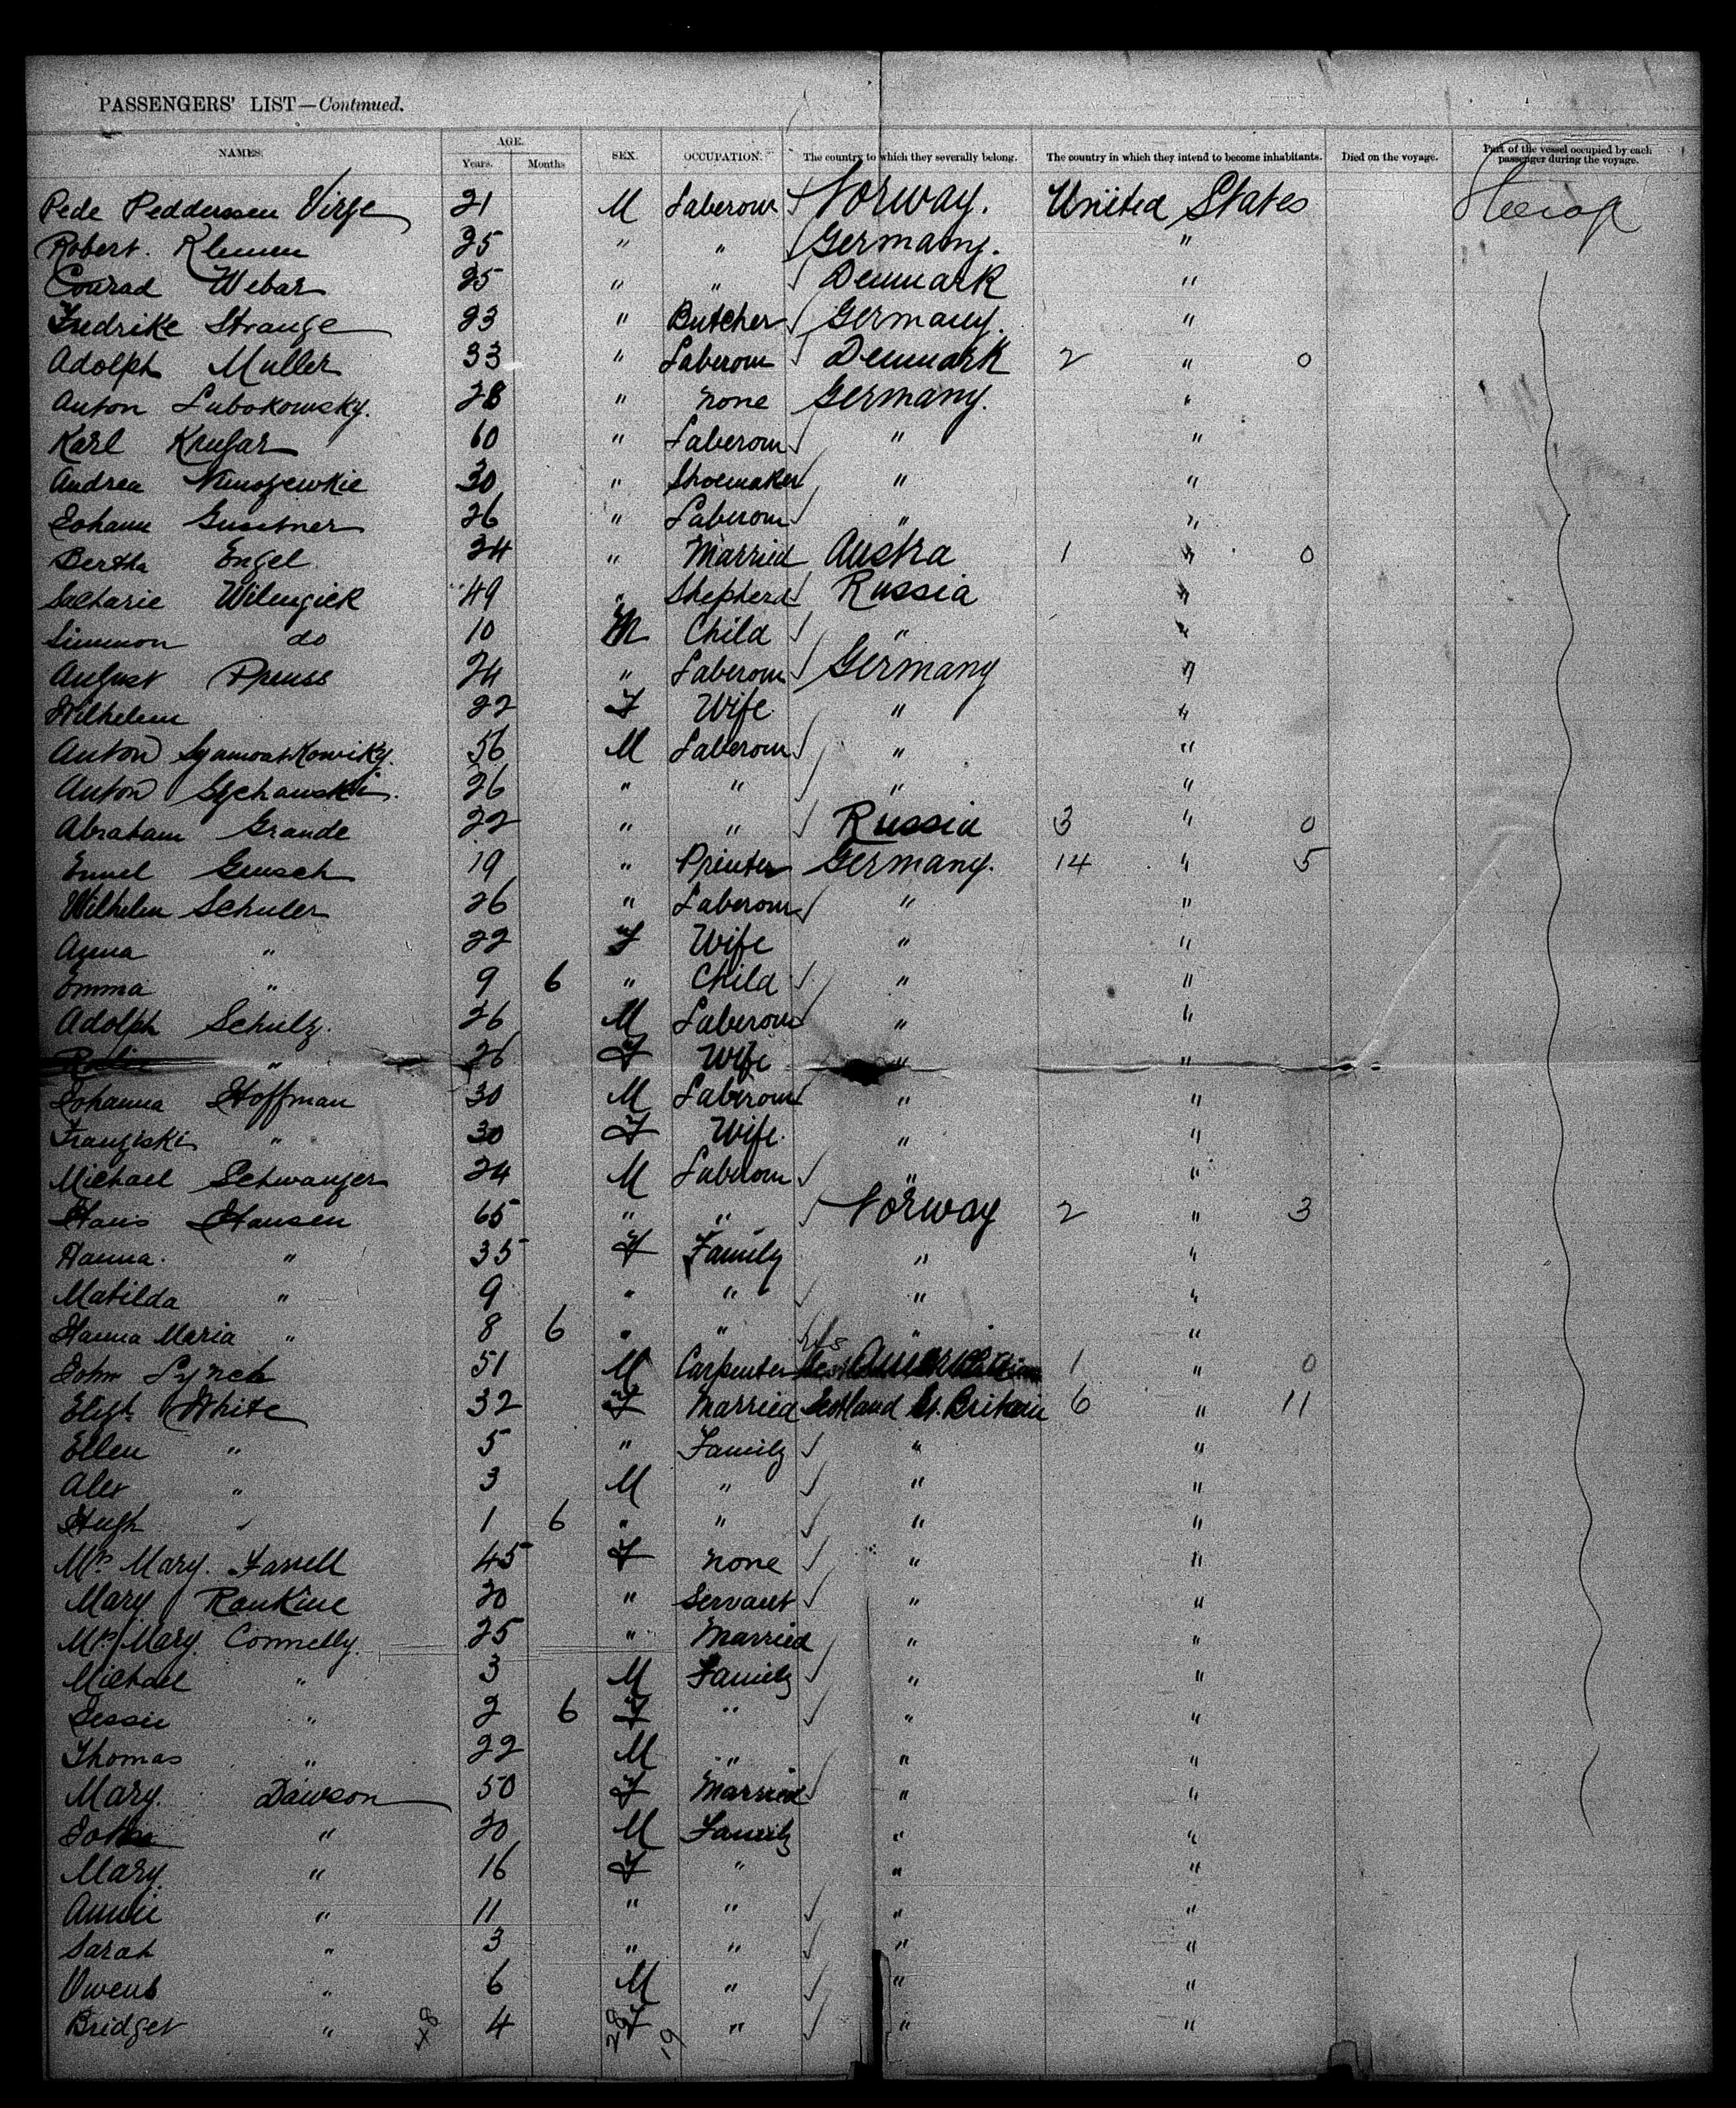 PASSENGERS' LIST—Continued.
NAMES. AGE. Years. Months SEX. OCCUPATION. The country to which they severally belong. The country in which they intend to become inhabitants. Died on the voyage. Part of the vessel occupied by each passenger during the voyage.
Pede Pedderssen Virge 21 M Laberour Norway. United States
Robert. Klemen 25 " " Germany. "
Conrad Webar 25 " " Denmark "
Fredrike Strange 23 " Butcher Germany. "
Adolph Muller 33 " Laberour Denmark 2 " 0
Anton Lubokowsky. 28 " none Germany. "
Karl Krugar 60 " Laberour " "
Andrea 30 " Shoemaker " "
Johann 26 " Laberour " "
Bertha Engel 24 " Married Austra 1 " 0
Sacharie 49 " Shepherd Russia "
Simmon do 10 M Child " "
August Preuss 24 " Laberour Germany "
Wilhelem 22 F Wife " "
Anton 56 M Laberour " "
Anton 26 " " " "
Abraham Grande 22 " " Russia 3 " 0
Emmel Gensch 19 " Printer Germany. 14 " 5
Wilhelem Schuler 26 " Laberour " "
Anna " 22 F Wife " "
Emma " 9 6 " Child " "
Adolph Schulz. 26 M Laberour " "
" 26 F Wife " "
Johanna Hoffman 30 M Laberour " "
Franziski " 30 F Wife. " "
Michael Schwanger 24 M Laberour " "
Hans Hansen 65 " " Norway 2 " 3
Hanna. " 35 F Family " "
Matilda " 9 " " " "
Hanna Maria " 8 6 " " " "
John Lynch 51 M Carpenter 1 " 0
Elizt White 32 F Married Scotland Gt. Britain 6 " 11
Ellen " 5 " Family " "
Alex " 3 M " " "
Hugh " 1 6 " " " "
Mrs Mary. Farrell 45 F none " "
Mary Rankine 20 " Servant " "
Mrs Mary. Connelly. 25 " Married " "
Michael " 3 M Family " "
Jessie " 2 6 F " " "
Thomas " 22 M " " "
Mary. Dawson 50 F Married " "
John " 20 M Family " "
Mary. " 16 F " " "
Annie " 11 " " " "
Sarah " 3 " " " "
Owens " 6 M " " "
Bridget " 4 F " " "
48 28 19